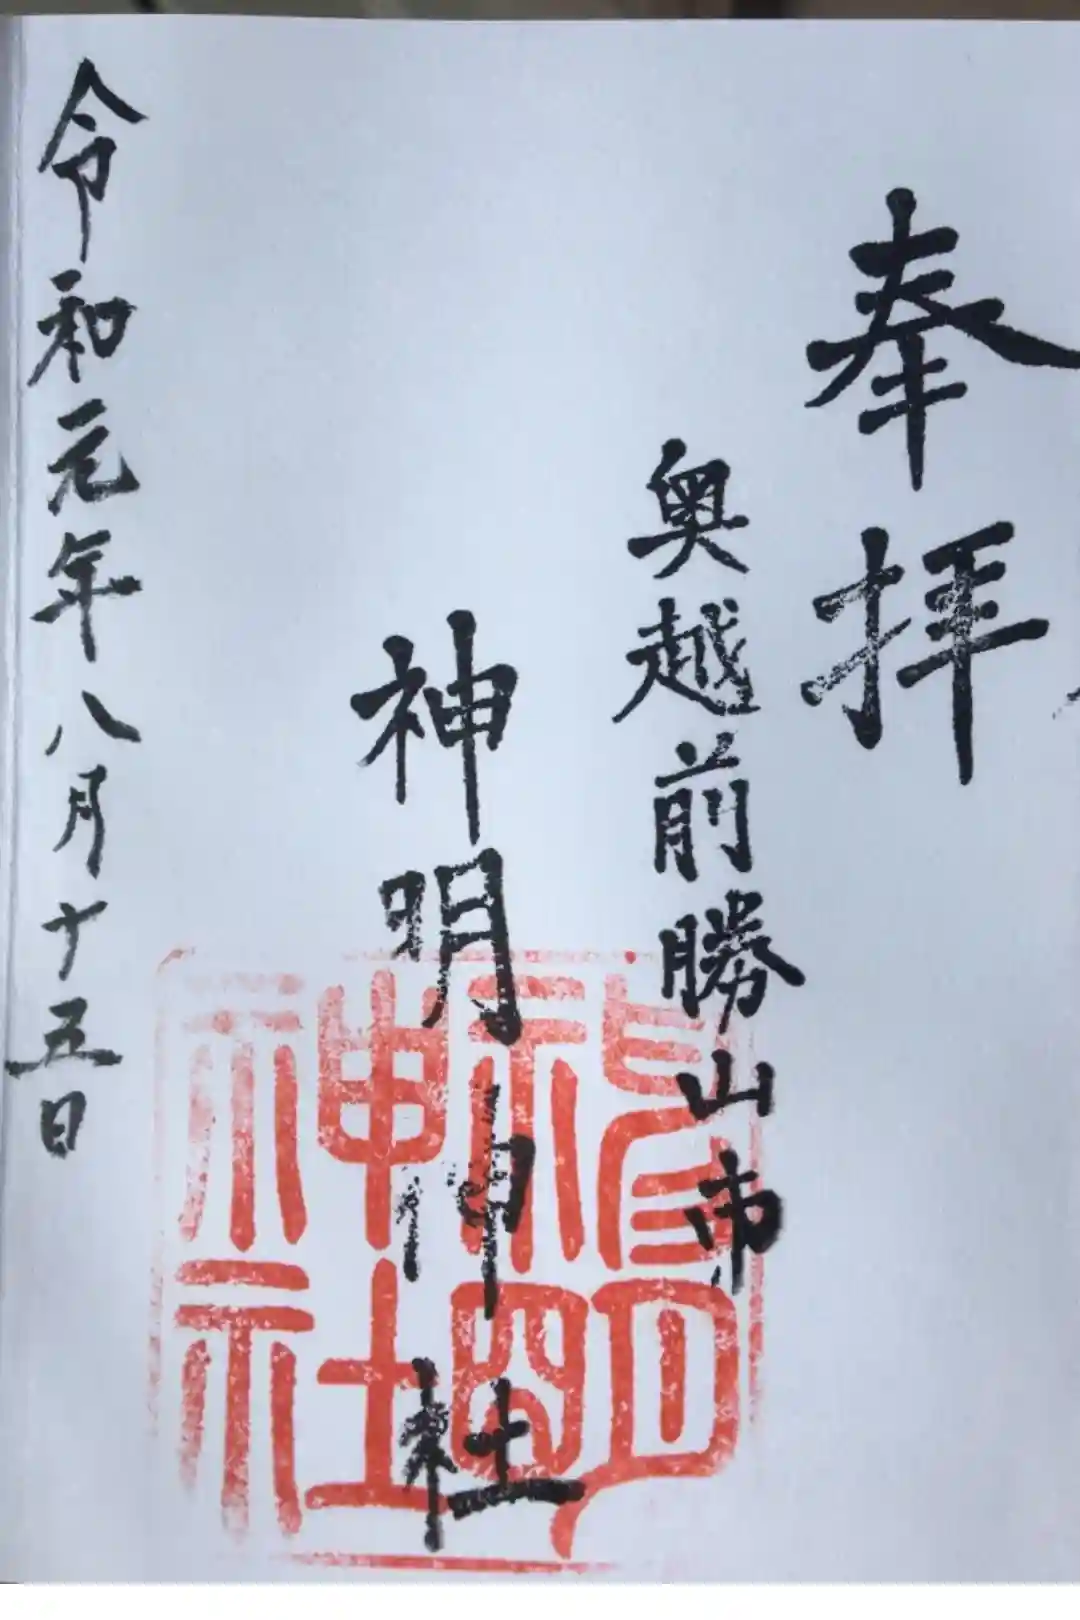 奉拝
奥越前勝山市
神明神社
神明神社
令和元年八月十五日